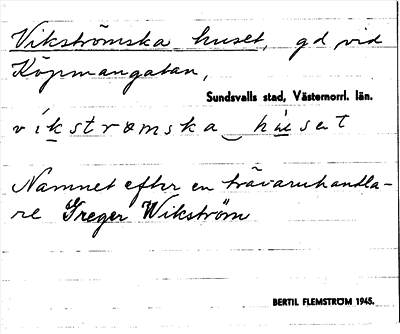 Vikströmska huset, gd vid
Köpmangatan,
Sundsvalls stad, Västernorrl. län.
víkstrœmska‿hʉset
Namnet efter en trävaruhandla-
re Greger Wikström
BERTIL FLEMSTRÖM 1945.